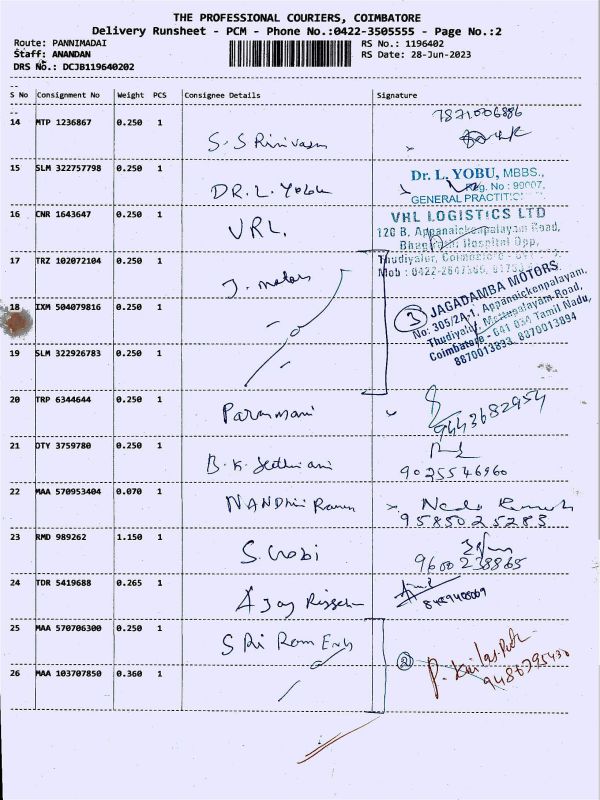 THE PROFESSIONAL COURIERS, COIMBATORE
Delivery Runsheet - PCM - Phone No.:0422-3505555 - Page No.:2
Route: PANNIMADAI
RS No.: 1196402
Staff: ANANDAN
RS Date: 28-Jun-2023
DRS No.: DCJB119640202
S No Consignment No Weight PCS Consignee Details Signature
14 MTP 1236867 0.250 1 S. SRinivasan 7871006886
15 SLM 322757798 0.250 1 DR. L. Yobu
Dr. L. YOBU, MBBS.,
Reg. No : 99007,
GENERAL PRACTITIO
16 CNR 1643647 0.250 1 VRL.
VHL LOGISTICS LTD
120 B, Appanaickenpalayam Road,
Bhagirathi Hospital Opp,
Thudiyalur, Coimbatore - 641
Mob : 0422-
17 TRZ 102072104 0.250 1 J. motors
3 JAGADAMBA MOTORS
No: 305/2A-1, Appanaickenpalayam,
Thudiyalur, Mettupalayam Road,
Coimbatore - 641 034 Tamil Nadu,
8870013893, 8870013894
18 IXM 504079816 0.250 1
19 SLM 322926783 0.250 1
20 TRP 6344644 0.250 1 Parammani 9443682954
21 OTY 3759780 0.250 1 B. K. 9025546960
22 MAA 570953404 0.070 1 NANDhini 9585025283
23 RMD 989262 1.150 1 S. 9600238865
24 TDR 5419688 0.265 1 AJay
25 MAA 570706300 0.250 1 SRi Ram Ent 2 P. 9486795430
26 MAA 103707850 0.360 1